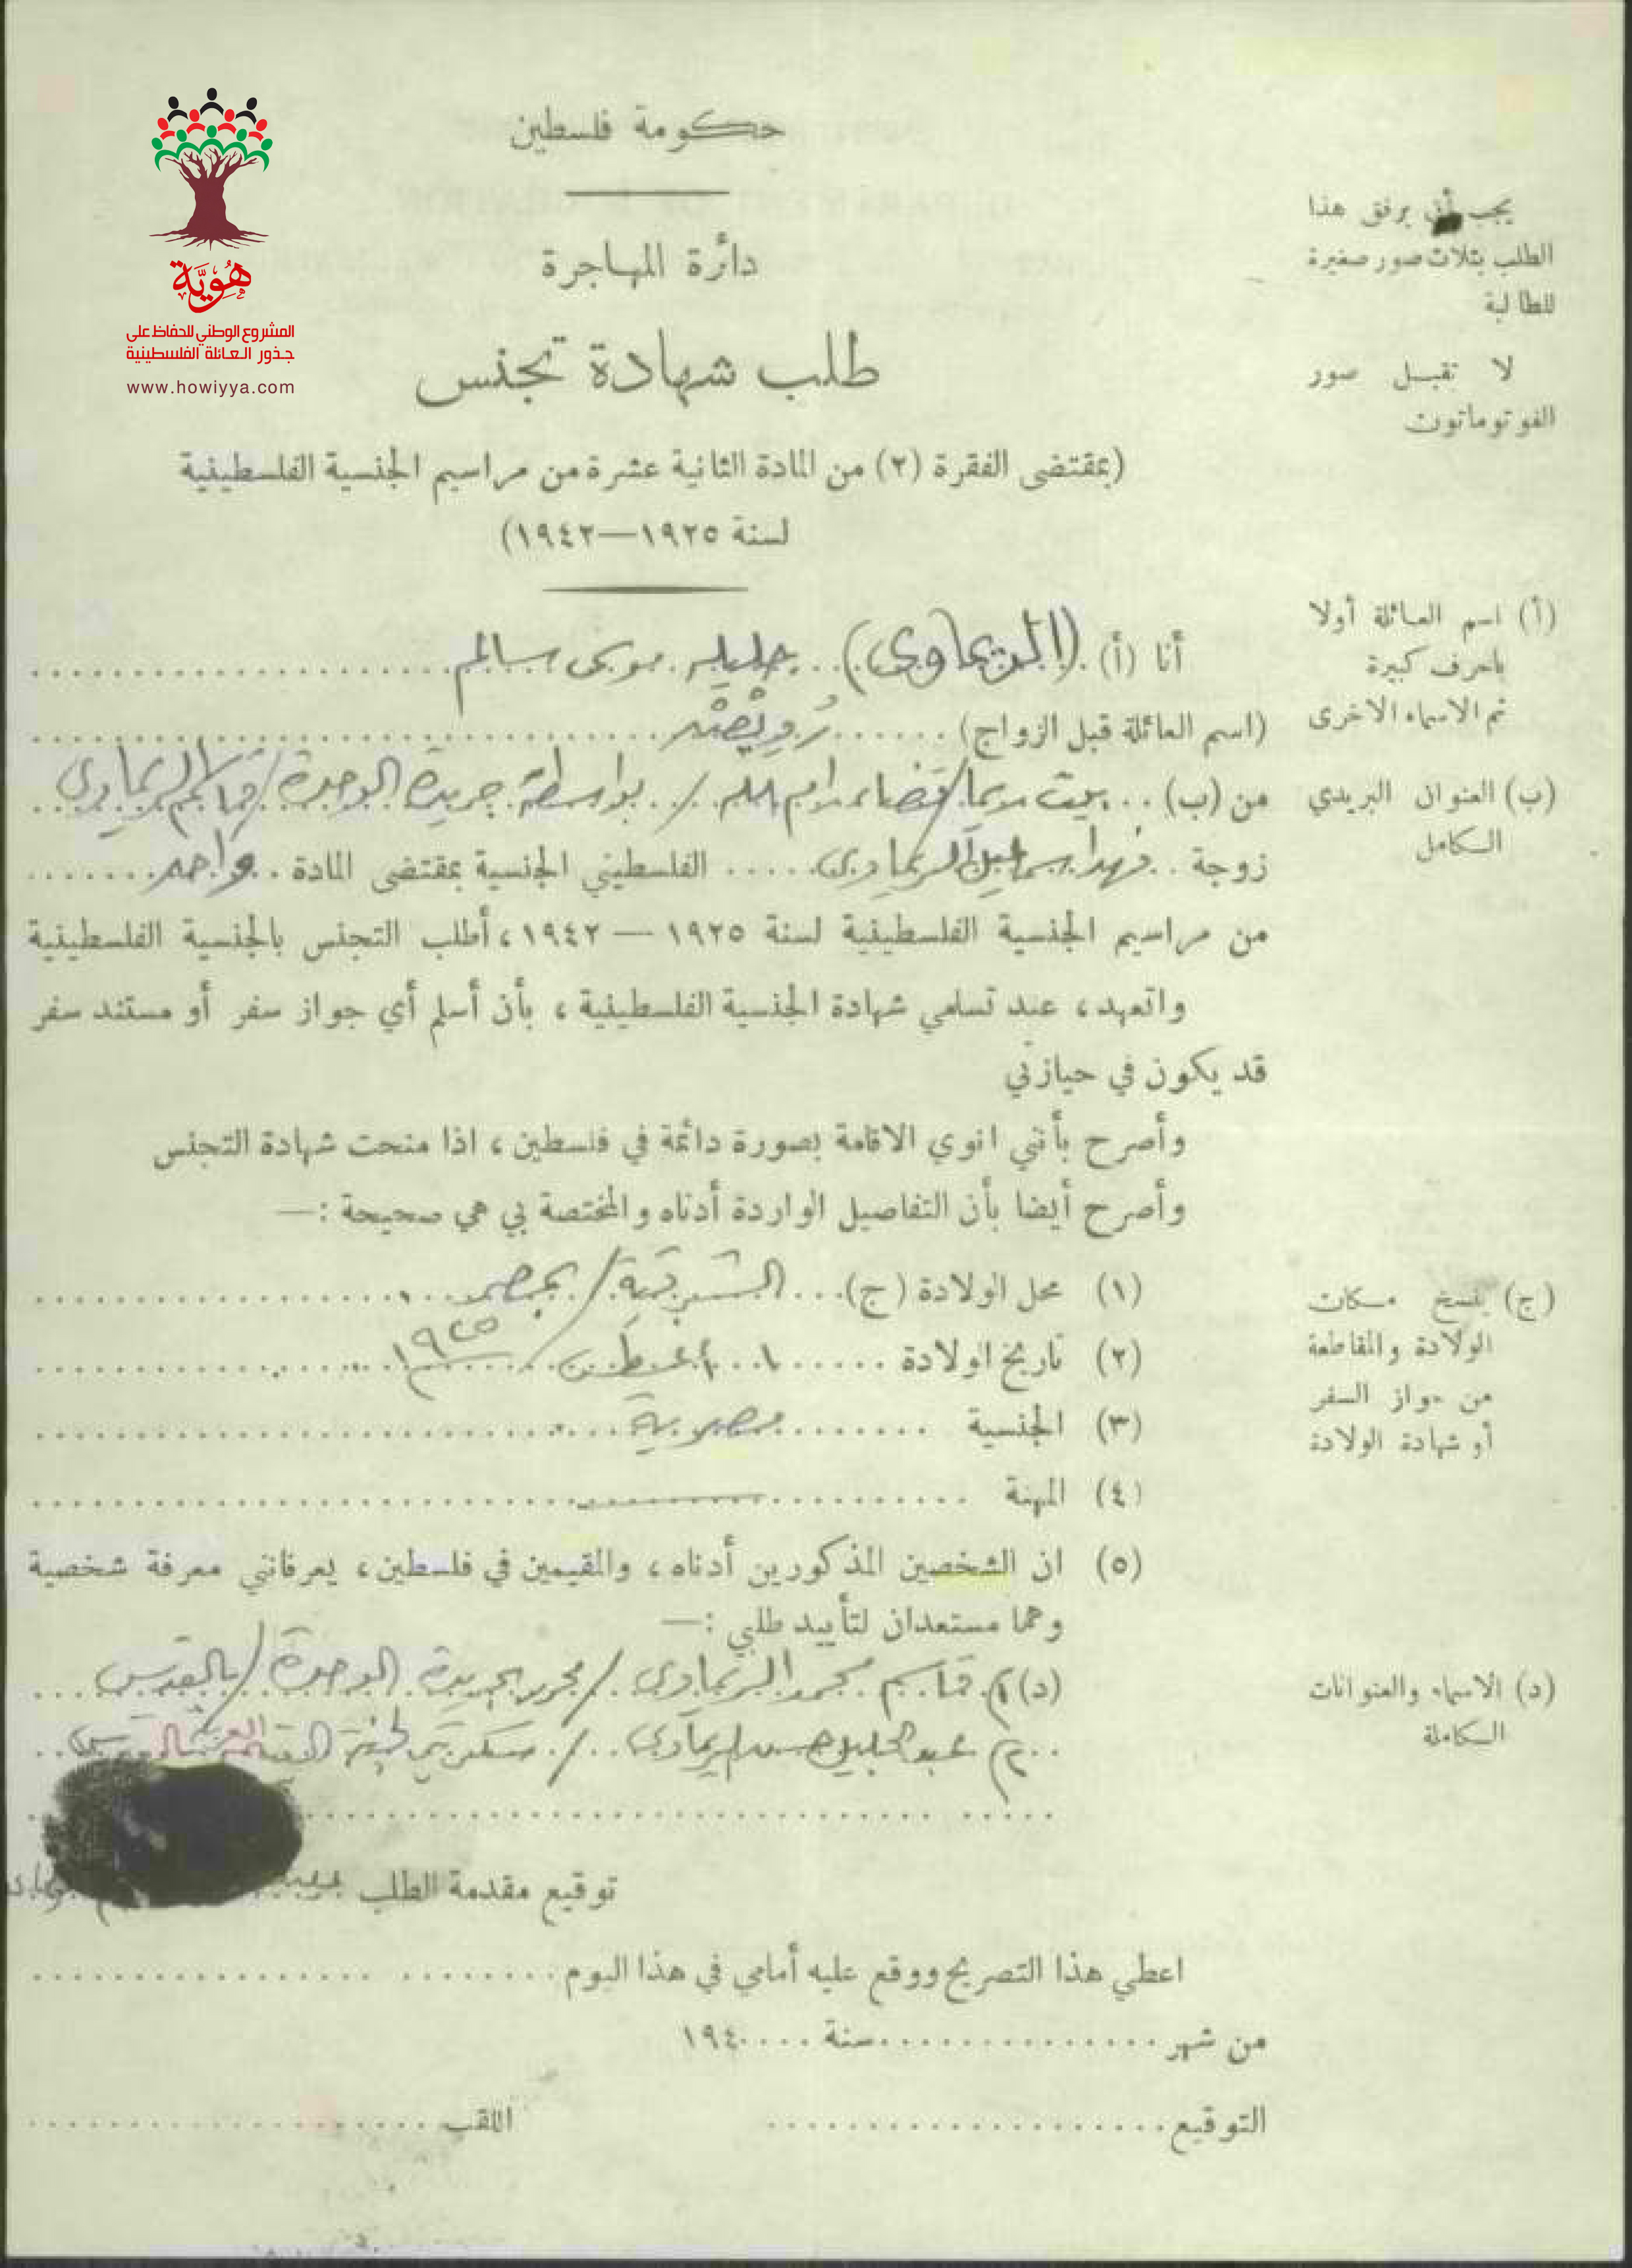 حكومة فلسطين
دائرة المهاجرة
طلب شهادة تجنس
(بمقتضى الفقرة (٢) من المادة الثانية عشرة من مراسيم الجنسية الفلسطينية
لسنة ١٩٢٥—١٩٤٢)
هوية
المشروع الوطني للحفاظ على
جذور العائلة الفلسطينية
www.howiyya.com
يجب أن يرفق هذا
الطلب بثلاث صور صغيرة
للطالبة
لا تقبل صور
الفوتوماتون
(أ) اسم العائلة أولا
باحرف كبيرة
ثم الاسماء الاخرى
أنا (أ) (الريماوي) جليله موسى سالم
(اسم العائلة قبل الزواج)
(ب) العنوان البريدي
الكامل
من (ب) بيت ريما / قضاء رام الله / بواسطة جريدة الوحدة / قاسم الريماوي
زوجة فهد اسماعيل الريماوي الفلسطيني الجنسية بمقتضى المادة واحد
من مراسيم الجنسية الفلسطينية لسنة ١٩٢٥ — ١٩٤٢، أطلب التجنس بالجنسية الفلسطينية
واتعهد، عند تسلمي شهادة الجنسية الفلسطينية، بأن أسلم أي جواز سفر أو مستند سفر
قد يكون في حيازتي
وأصرح بأنني انوي الاقامة بصورة دائمة في فلسطين، اذا منحت شهادة التجنس
وأصرح أيضا بأن التفاصيل الواردة أدناه والمختصة بي هي صحيحة :—
(ج) ينسخ مكان
الولادة والمقاطعة
من جواز السفر
أو شهادة الولادة
(١) محل الولادة (ج) الشرقية / بمصر
(٢) تاريخ الولادة ١ أغسطس ١٩٢٥
(٣) الجنسية مصرية
(٤) المهنة
(٥) ان الشخصين المذكورين أدناه، والمقيمين في فلسطين، يعرفانني معرفة شخصية
وهما مستعدان لتأييد طلبي :—
(د) الاسماء والعنوانات
الكاملة
(د) ١) قاسم محمد الريماوي / محرر بجريدة الوحدة / بالقدس
٢) عبد الجليل حسن الريماوي / سكرتير لجنة
توقيع مقدمة الطلب
اعطي هذا التصريح ووقع عليه أمامي في هذا اليوم
من شهر سنة ١٩٤
التوقيع اللقب